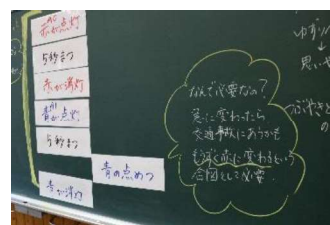 赤が点灯
5秒まつ
赤が消灯
青が点灯
5秒まつ
青の点めつ
青が消灯
なんで必要なの?
急に変わったら
交通事故にあうかも
もうすぐ赤に変わるという
合図として必要
ゆずり
思いや